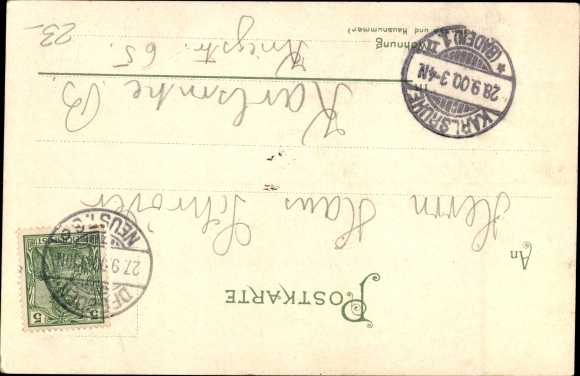 POSTKARTE
An
Herrn Hans Schröder
Karlsruhe B
in
Wohnung
(Straße und Hausnummer)
Kriegstr. 65.
23.
KARLSRUHE
28.9.00.3-4N.
* (BADEN) 1.
27.9.
5